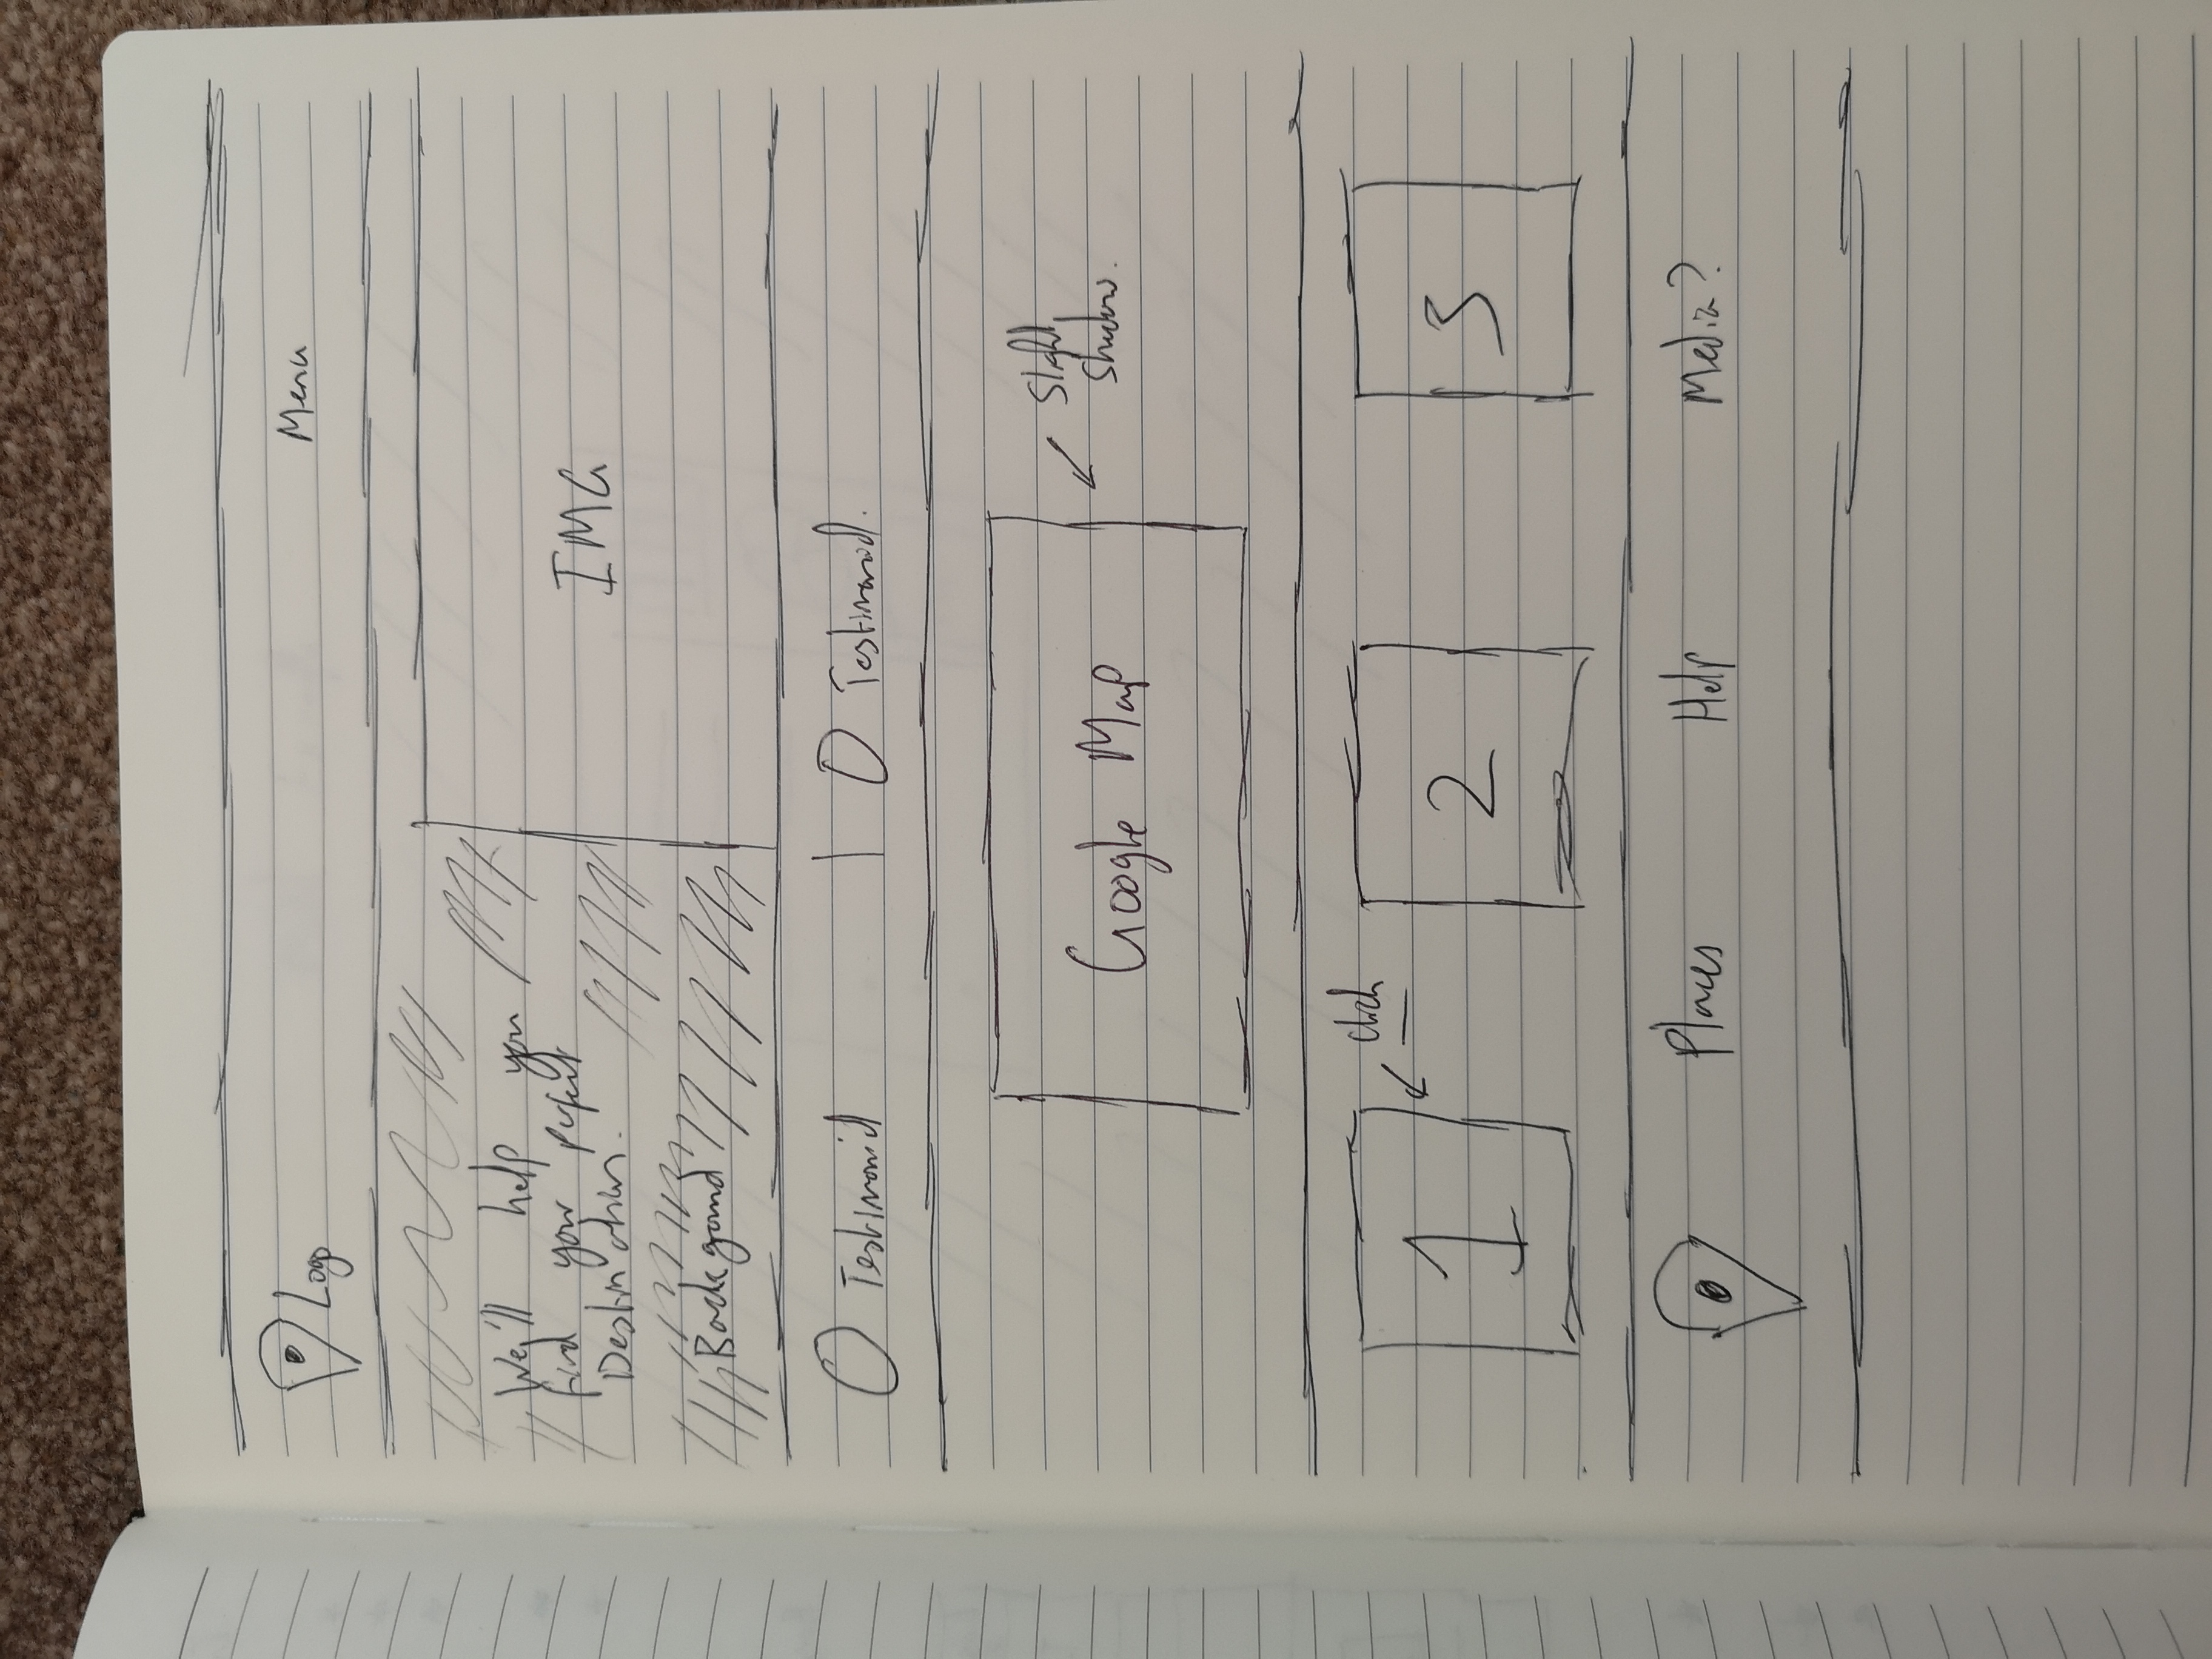 Logo
Menu
We'll help you
find your perfect
Destination.
Background
IMG
Testimonial
Testimonial.
Google Map
Slight
Shadow.
1
click
2
3
Places
Help
Media?